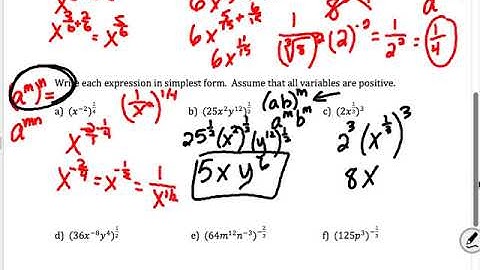 x^{3/6 + 2/6} = x^{5/6}
6x^{5/15 + 6/15}
6x^{11/15}
8
(2)^{-2} = 1/2^2 = 1/4
a^m
Write each expression in simplest form. Assume that all variables are positive.
(a^m)^n =
a^{mn}
a) (x^{-2})^{1/4}
(1/x^2)^{1/4}
x^{-2/1 · 1/4}
x^{-2/4} = x^{-1/2} = 1/x^{1/2}
b) (25x^2y^{12})^{1/2}
(ab)^m
a^m b^m
25^{1/2} (x^2)^{1/2} (y^{12})^{1/2}
5 x y^6
c) (2x^{1/3})^3
2^3 (x^{1/3})^3
8x
d) (36x^{-8}y^4)^{1/2}
e) (64m^{12}n^{-3})^{-2/3}
f) (125p^3)^{-1/3}